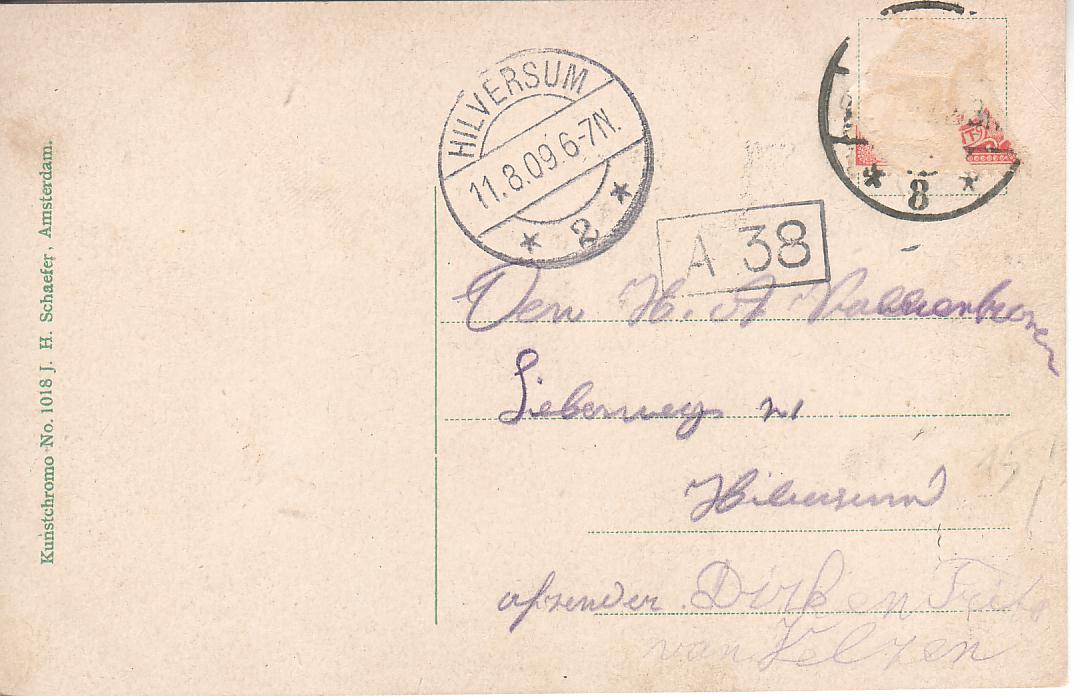 HILVERSUM
11.8.09 6-7N.
* 2 *
* 8 *
A 38
Den H. A
n1
Hilversum
afzender Dirk en
van Velzen
Kunstchromo No. 1018 J. H. Schaefer, Amsterdam.